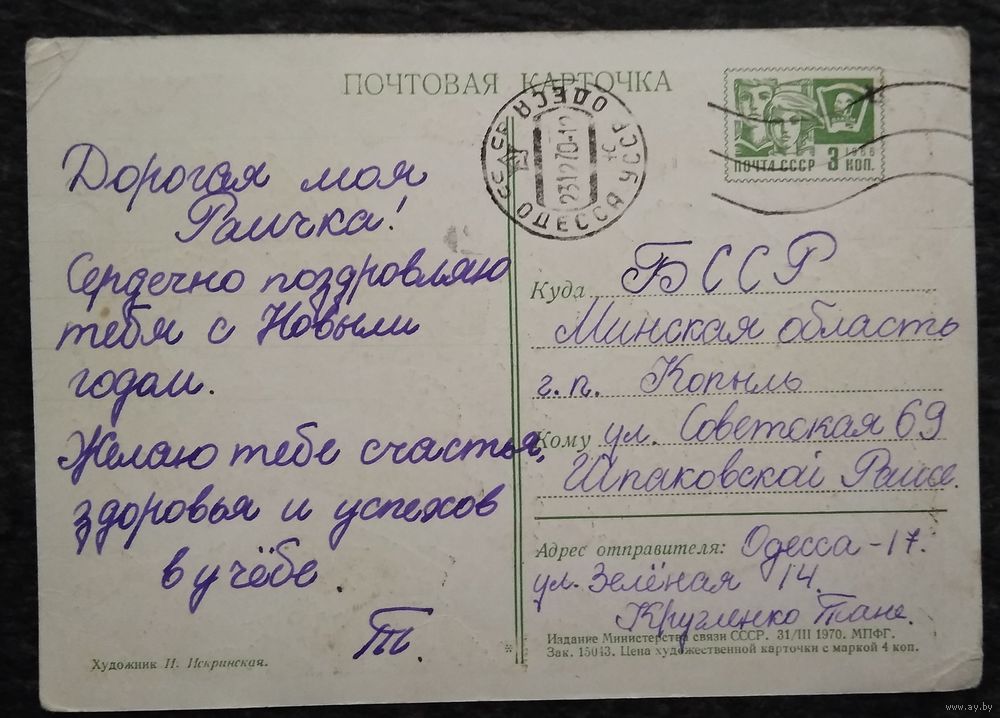 ПОЧТОВАЯ КАРТОЧКА
Дорогая моя
Раичка!
Сердечно поздровляю
тебя с Новым
годом.
Желаю тебе счастья,
здоровья и успехов
в учёбе.
Т.
Художник И. Искринская.
ОДЕССА УССР
ОДЕСА
231270-12
ПОЧТА СССР 3 КОП.
1966
Куда БССР
Минская область
г.п. Копыль
Кому ул. Советская 69
Шпаковской Раисе.
Адрес отправителя: Одесса-17.
ул. Зелёная 14.
Кругленко Тане.
Издание Министерства связи СССР. 31/III 1970. МПФГ.
Зак. 15043. Цена художественной карточки с маркой 4 коп.
www.ay.by